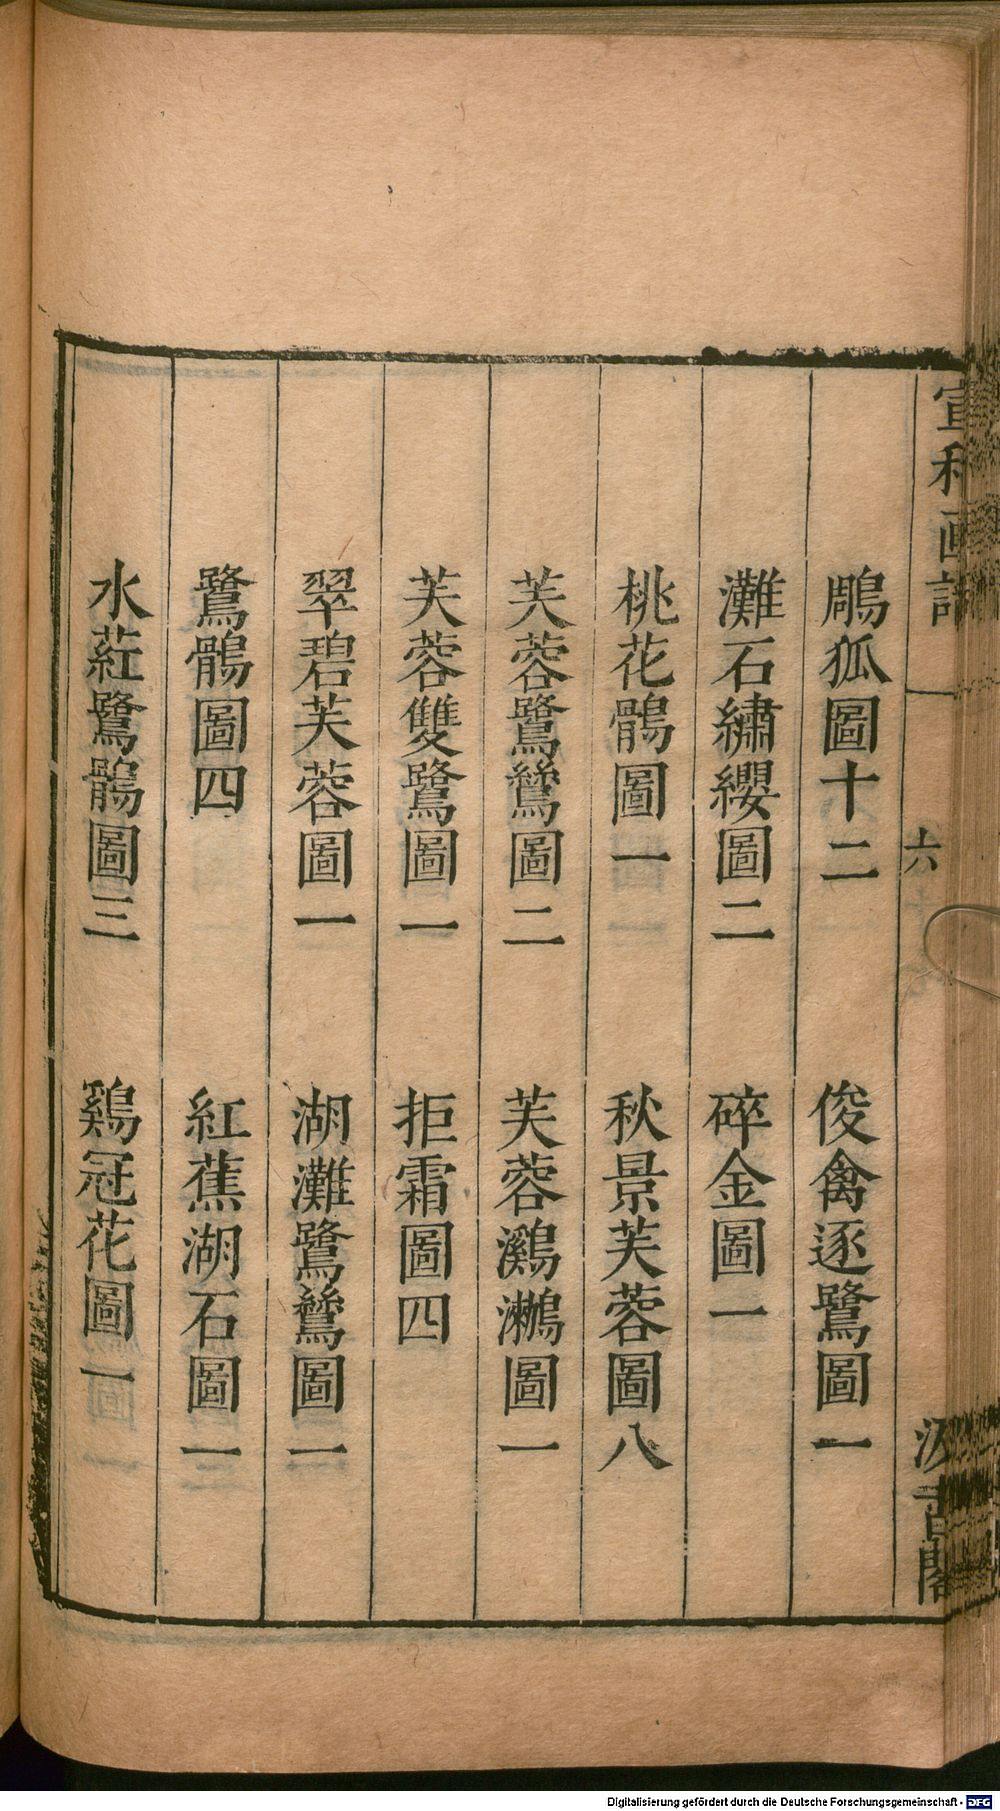 宣和画譜 六 汲古閣
鵰狐圖十二 俊禽逐鷺圖一
灘石繡纓圖二 碎金圖一
桃花鶻圖一 秋景芙蓉圖八
芙蓉鷺鷥圖二 芙蓉鸂鶒圖一
芙蓉雙鷺圖一 拒霜圖四
翠碧芙蓉圖一 湖灘鷺鷥圖一
鷺鶻圖四 紅蕉湖石圖一
水葒鷺鶻圖三 鷄冠花圖一
Digitalisierung gefördert durch die Deutsche Forschungsgemeinschaft - DFG